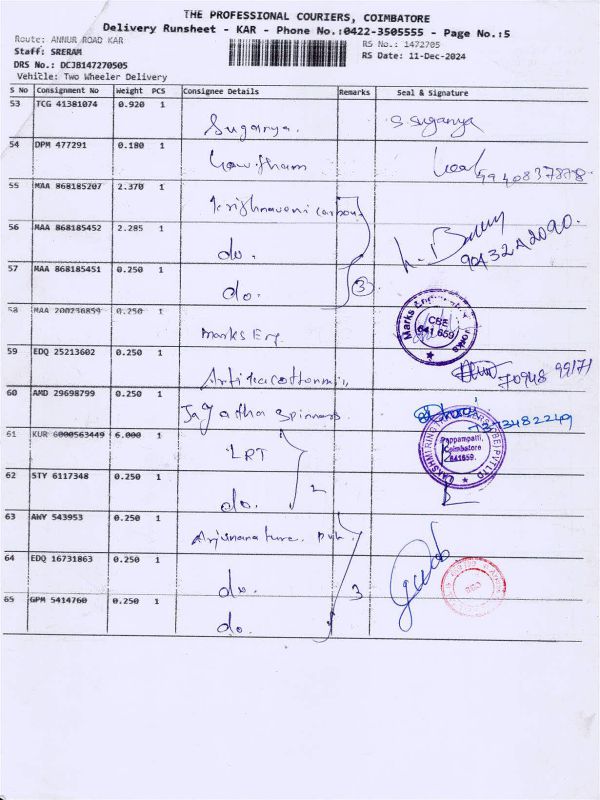 THE PROFESSIONAL COURIERS, COIMBATORE
Delivery Runsheet - KAR - Phone No.:0422-3505555 - Page No.:5
Route: ANNUR ROAD KAR
RS No.: 1472705
Staff: SRERAM
RS Date: 11-Dec-2024
DRS No.: DCJB147270505
Vehicle: Two Wheeler Delivery
S No Consignment No Weight PCS Consignee Details Remarks Seal & Signature
53 TCG 41381074 0.920 1 Suganya. S Suganya
54 DPM 477291 0.180 1 Gowtham 9940837878
55 MAA 868185207 2.370 1 Krishnaveni carbon
56 MAA 868185452 2.285 1 do.
57 MAA 868185451 0.250 1 do. 3
58 MAA 200236859 0.250 1 Marks Eng CBE 641 659
59 EDQ 25213602 0.250 1 70948 99171
60 AMD 29698799 0.250 1 Jagatha Spinners 7373482249
61 KUR 6000563449 6.000 1 LRT Pappampatti, Coimbatore 641659.
62 STY 6117348 0.250 1 do. 2
63 AWY 543953 0.250 1
64 EDQ 16731863 0.250 1 do. 3
65 GPM 5414760 0.250 1 do.